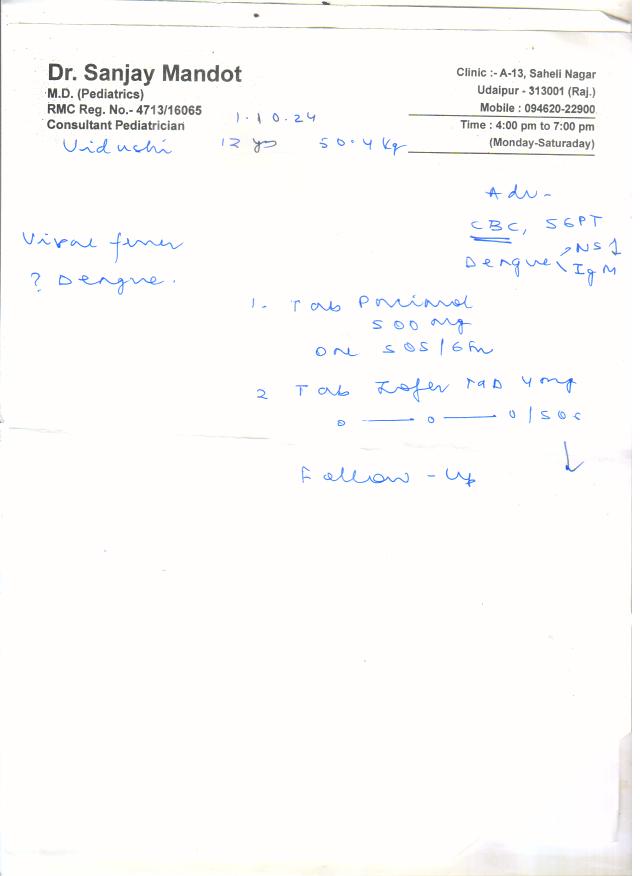 Dr. Sanjay Mandot
M.D. (Pediatrics)
RMC Reg. No.- 4713/16065
Consultant Pediatrician
Clinic :- A-13, Saheli Nagar
Udaipur - 313001 (Raj.)
Mobile : 094620-22900
Time : 4:00 pm to 7:00 pm
(Monday-Saturaday)
1.10.24
Vidushi 12 yo 50.4 Kg
Adv -
CBC, SGPT
Dengue NS1
IgM
Viral fever
? Dengue.
1. Tab
500 mg
one SOS/6hr
2 Tab Zofer 4 mg
0 — 0 — 0/SOS
Follow - Up